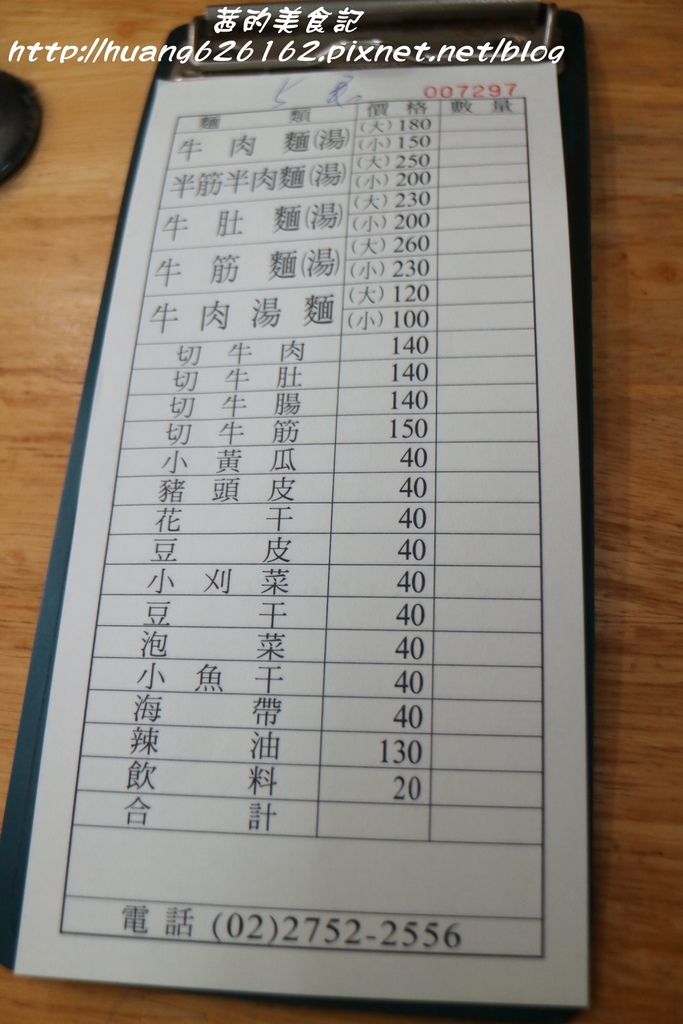 茜的美食記
http://huang626162.pixnet.net/blog
007297
麵類 價格 數量
牛肉麵(湯) (大)180
(小)150
半筋半肉麵(湯) (大)250
(小)200
牛肚麵(湯) (大)230
(小)200
牛筋麵(湯) (大)260
(小)230
牛肉湯麵 (大)120
(小)100
切牛肉 140
切牛肚 140
切牛腸 140
切牛筋 150
小黃瓜 40
豬頭皮 40
花干 40
豆皮 40
小刈菜 40
豆干 40
泡菜 40
小魚干 40
海帶 40
辣油 130
飲料 20
合計
電話 (02)2752-2556